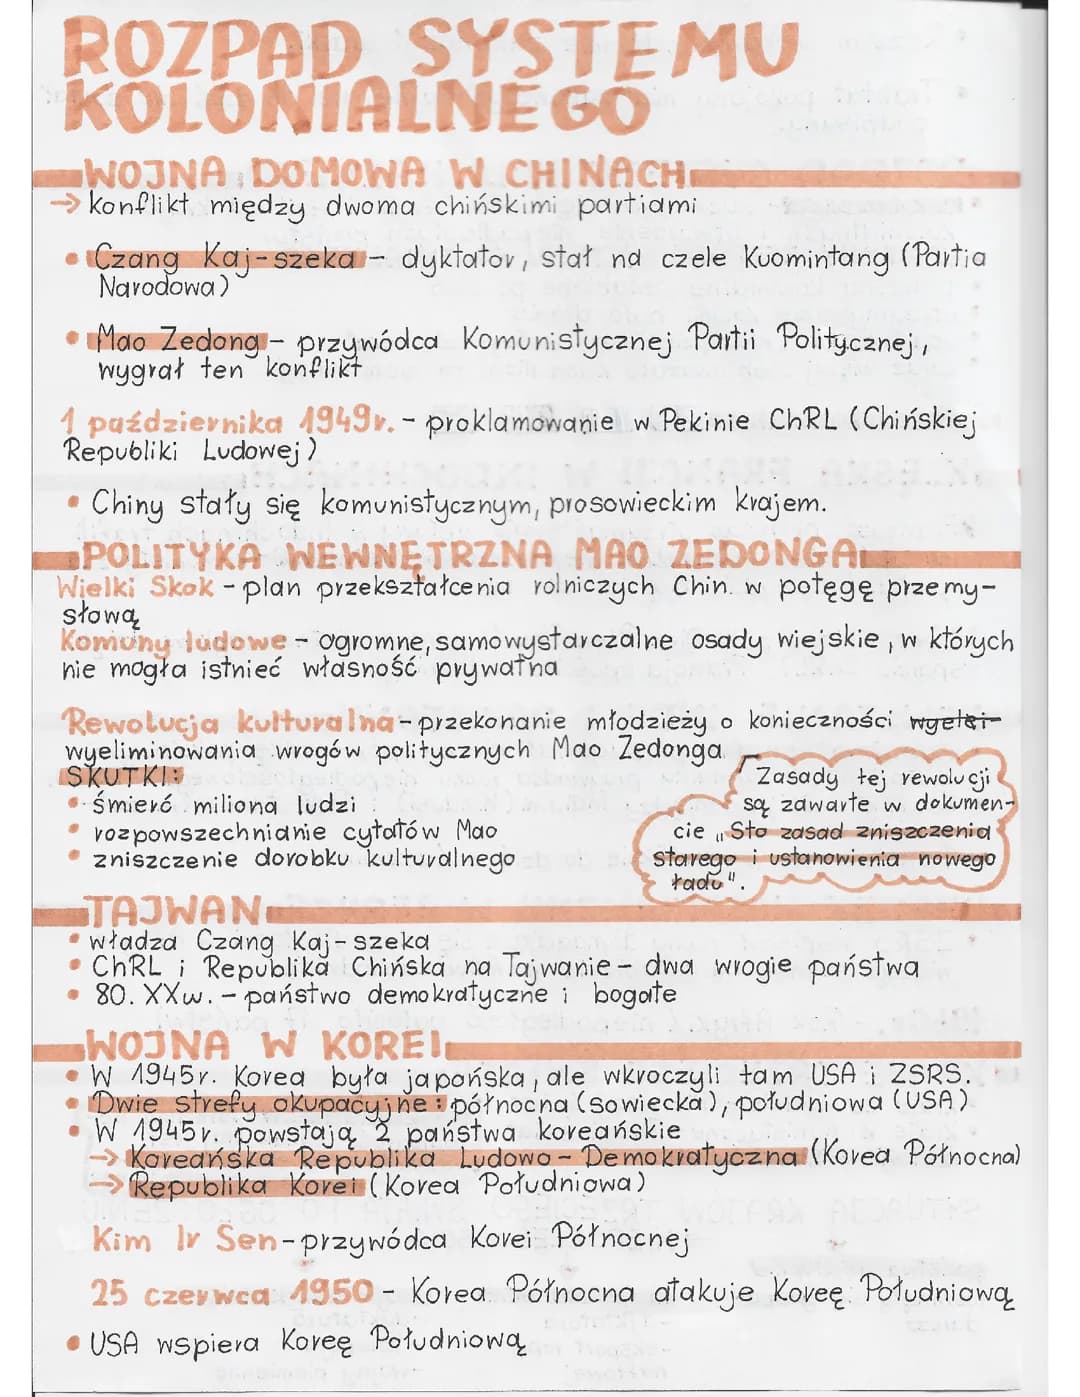 ROZPAD SYSTEMU
KOLONIALNEGO
WOJNA DOMOWA W CHINACH
→ konflikt między dwoma chińskimi partiami
• Czang Kaj-szeka - dyktator, stał na czele Kuomintang (Partia
Narodowa)
• Mao Zedong - przywódca Komunistycznej Partii Politycznej,
wygrał ten konflikt
1 października 1949r. - proklamowanie w Pekinie ChRL (Chińskiej
Republiki Ludowej)
• Chiny stały się komunistycznym, prosowieckim krajem.
POLITYKA WEWNĘTRZNA MAO ZEDONGA
Wielki Skok - plan przekształcenia rolniczych Chin. w potęgę przemy-
słową
Komuny ludowe - ogromne, samowystarczalne osady wiejskie, w których
nie mogła istnieć własność prywatna
Rewolucja kulturalna - przekonanie młodzieży o konieczności wyeli-
wyeliminowania wrogów politycznych Mao Zedonga.
SKUTKI:
• śmierć miliona ludzi
• rozpowszechnianie cytatów Mao
• zniszczenie dorobku kulturalnego
Zasady tej rewolucji
są zawarte w dokumen-
cie „Sto zasad zniszczenia
starego i ustanowienia nowego
ładu".
TAJWAN
• władza Czang Kaj-szeka
• ChRL i Republika Chińska na Tajwanie - dwa wrogie państwa
• 80. XXw. - państwo demokratyczne i bogate
WOJNA W KOREI
• W 1945r. Korea była japońska, ale wkroczyli tam USA i ZSRS.
• Dwie strefy okupacyjne: północna (sowiecka), południowa (USA)
• W 1945r. powstają 2 państwa koreańskie
→ Koreańska Republika Ludowo-Demokratyczna (Korea Północna)
→ Republika Korei (Korea Południowa)
Kim Ir Sen - przywódca Korei Północnej
25 czerwca 1950 - Korea Północna atakuje Koreę Południową
• USA wspiera Koreę Południową